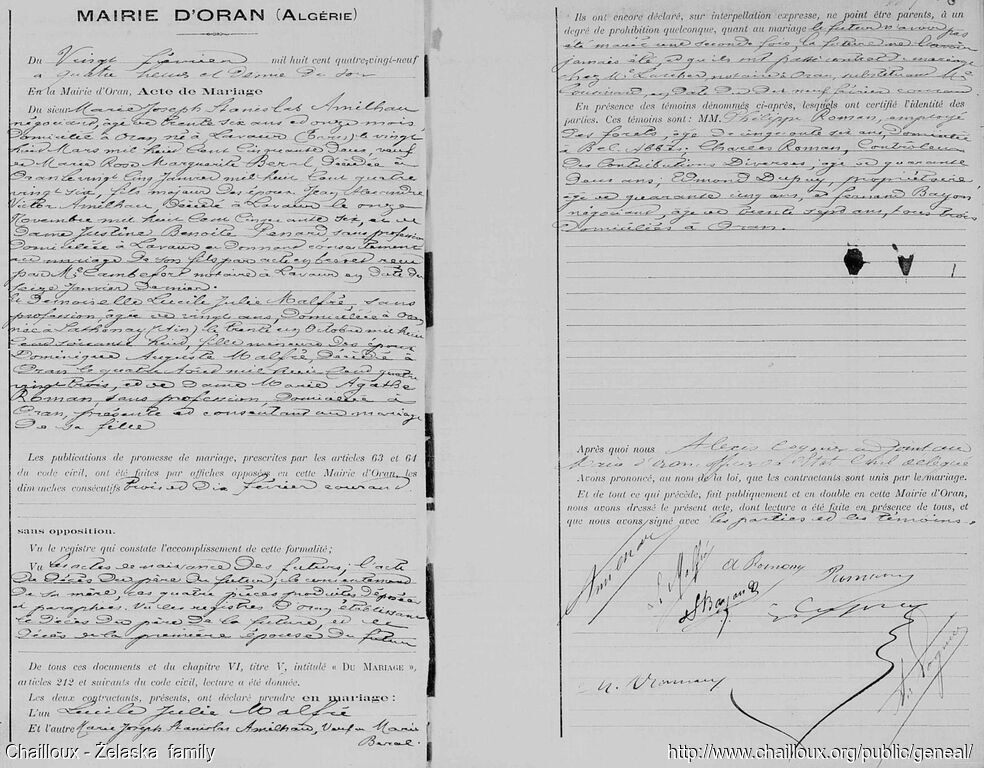 MAIRIE D'ORAN (ALGÉRIE)
Du Vingt février mil huit cent quatre-vingt-neuf
a quatre heures et demie du soir
En la Mairie d'Oran, Acte de Mariage
Du sieur Marie Joseph Stanislas Amilhau
négociant, âgé de trente six ans et onze mois,
domicilié à Oran, né à Lavaur (Tarn) le vingt
huit Mars mil huit cent cinquante deux, veuf
de Marie Rose Marguerite Beral, décédée à
Oran le vingt cinq Janvier mil huit cent quatre
vingt six, fils majeur des époux Jean Alexandre
Victor Amilhau décédé à Lavaur le onze
Novembre mil huit cent cinquante six, et de
Dame Justine Benoite Renard sans profession
domiciliée à Lavaur et donnant consentement
au mariage de son fils par acte en brevet reçu
par Me Cambefort notaire à Lavaur en date du
seize Janvier dernier.
et Demoiselle Lucile Julie Malfré, sans
profession, âgée de vingt ans, domiciliée à Oran
née à Sathonay (Ain) le trente un Octobre mil huit
cent soixante huit, fille mineure des époux
Dominique Auguste Malfré, décédé à
Oran le quatre Août mil huit cent quatre
vingt trois, et de dame Marie Agathe
Roman, sans profession, domiciliée à
Oran, présente et consentant au mariage
de sa fille
Les publications de promesse de mariage, prescrites par les articles 63 et 64
du code civil, ont été faites par affiches apposées en cette Mairie d'Oran, les
dimanches consécutifs trois et dix février courant
sans opposition.
Vu le registre qui constate l'accomplissement de cette formalité;
Vu les actes de naissance des futurs; l'acte
de décès du père du futur; le consentement
de sa mère, ces quatre pièces produites déposées
et paraphées. Vu les registres d'Oran établissant
le décès du père de la future, et le
décès de la première épouse du futur
De tous ces documents et du chapitre VI, titre V, intitulé « DU MARIAGE »,
articles 212 et suivants du code civil, lecture a été donnée.
Les deux contractants, présents, ont déclaré prendre en mariage:
L'un Lucile Julie Malfré
Et l'autre Marie Joseph Stanislas Amilhau, Veuf de Marie
Beral.
Ils ont encore déclaré, sur interpellation expresse, ne point être parents, à un
degré de prohibition quelconque, quant au mariage le futur n'avoir pas
été marié une seconde fois, la future ne l'avoir
jamais été, et qu'ils ont passé contrat de mariage
chez Me notaire à Oran, substituant Me
en date du dix neuf février courant.
En présence des témoins dénommés ci-après, lesquels ont certifié l'identité des
parties. Ces témoins sont: MM. Philippe Roman, employé
des forêts, âgé de cinquante six ans, domicilié
à Bel Abbès. Charles Roman, Contrôleur
des Contributions Diverses, âgé de quarante
deux ans; Edmond Dupuy, propriétaire,
âgé de quarante cinq ans, et fernand Bayon
négociant, âgé de trente sept ans, tous trois
domiciliés à Oran.
Après quoi nous Alexis Cognier adjoint au
Maire d'Oran officier de l'Etat Civil délégué
Avons prononcé, au nom de la loi, que les contractants sont unis par le mariage.
Et de tout ce qui précède, fait publiquement et en double en cette Mairie d'Oran,
nous avons dressé le présent acte, dont lecture a été faite en présence de tous, et
que nous avons signé avec les parties et les témoins.
L Malfré
Chailloux - Żelaska family
http://www.chailloux.org/public/geneal/